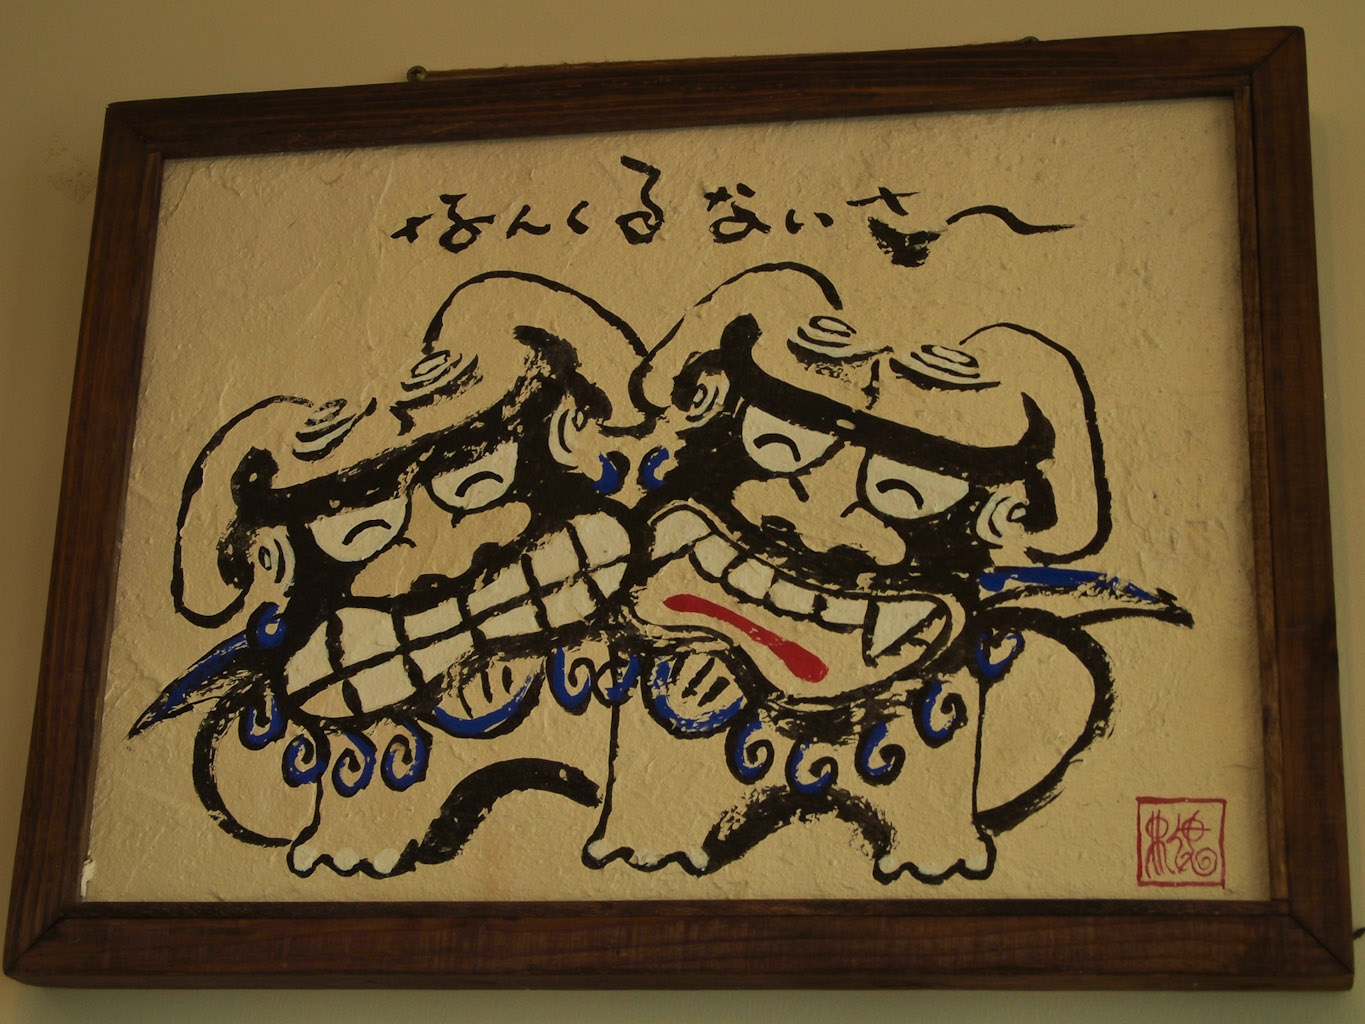 なんくるないさ〜